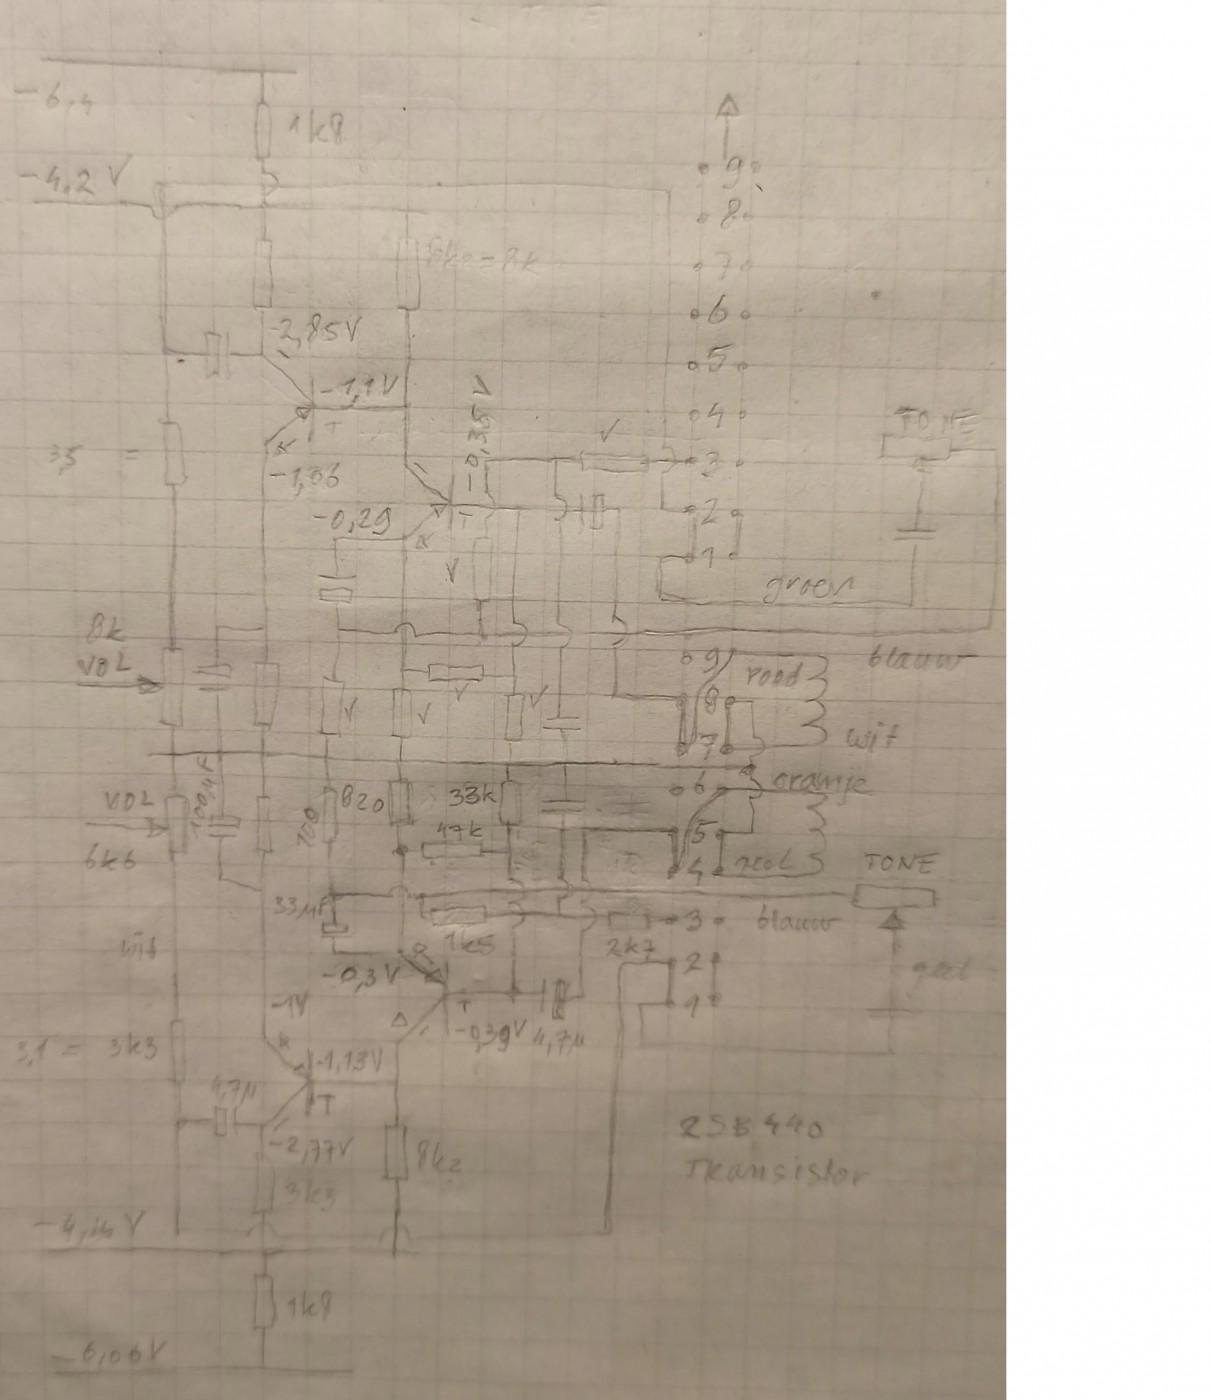 -6,4
1k8
-4,2 V
9
8
7
6
5
4
3
2
1
-2,85V
-1,1V
-0,35V
T
K
-1,06
-0,29
T
K
V
V
3,5 =
TONE
groen
blauw
8k
VOL
V
V
V
V
9
rood
8
7
wit
6
oranje
5
4
VOL
6k6
100µF
100
820
33k
47k
33µF
1k5
2k7
3
blauw
2
1
TONE
geel
wit
-0,3V
T
-0,39V
4,7µ
-1V
K
-1,13V
T
3,1 = 3k3
4,7µ
-2,77V
3k3
8k2
2SB440
Transistor
-4,14 V
1k8
-6,06V